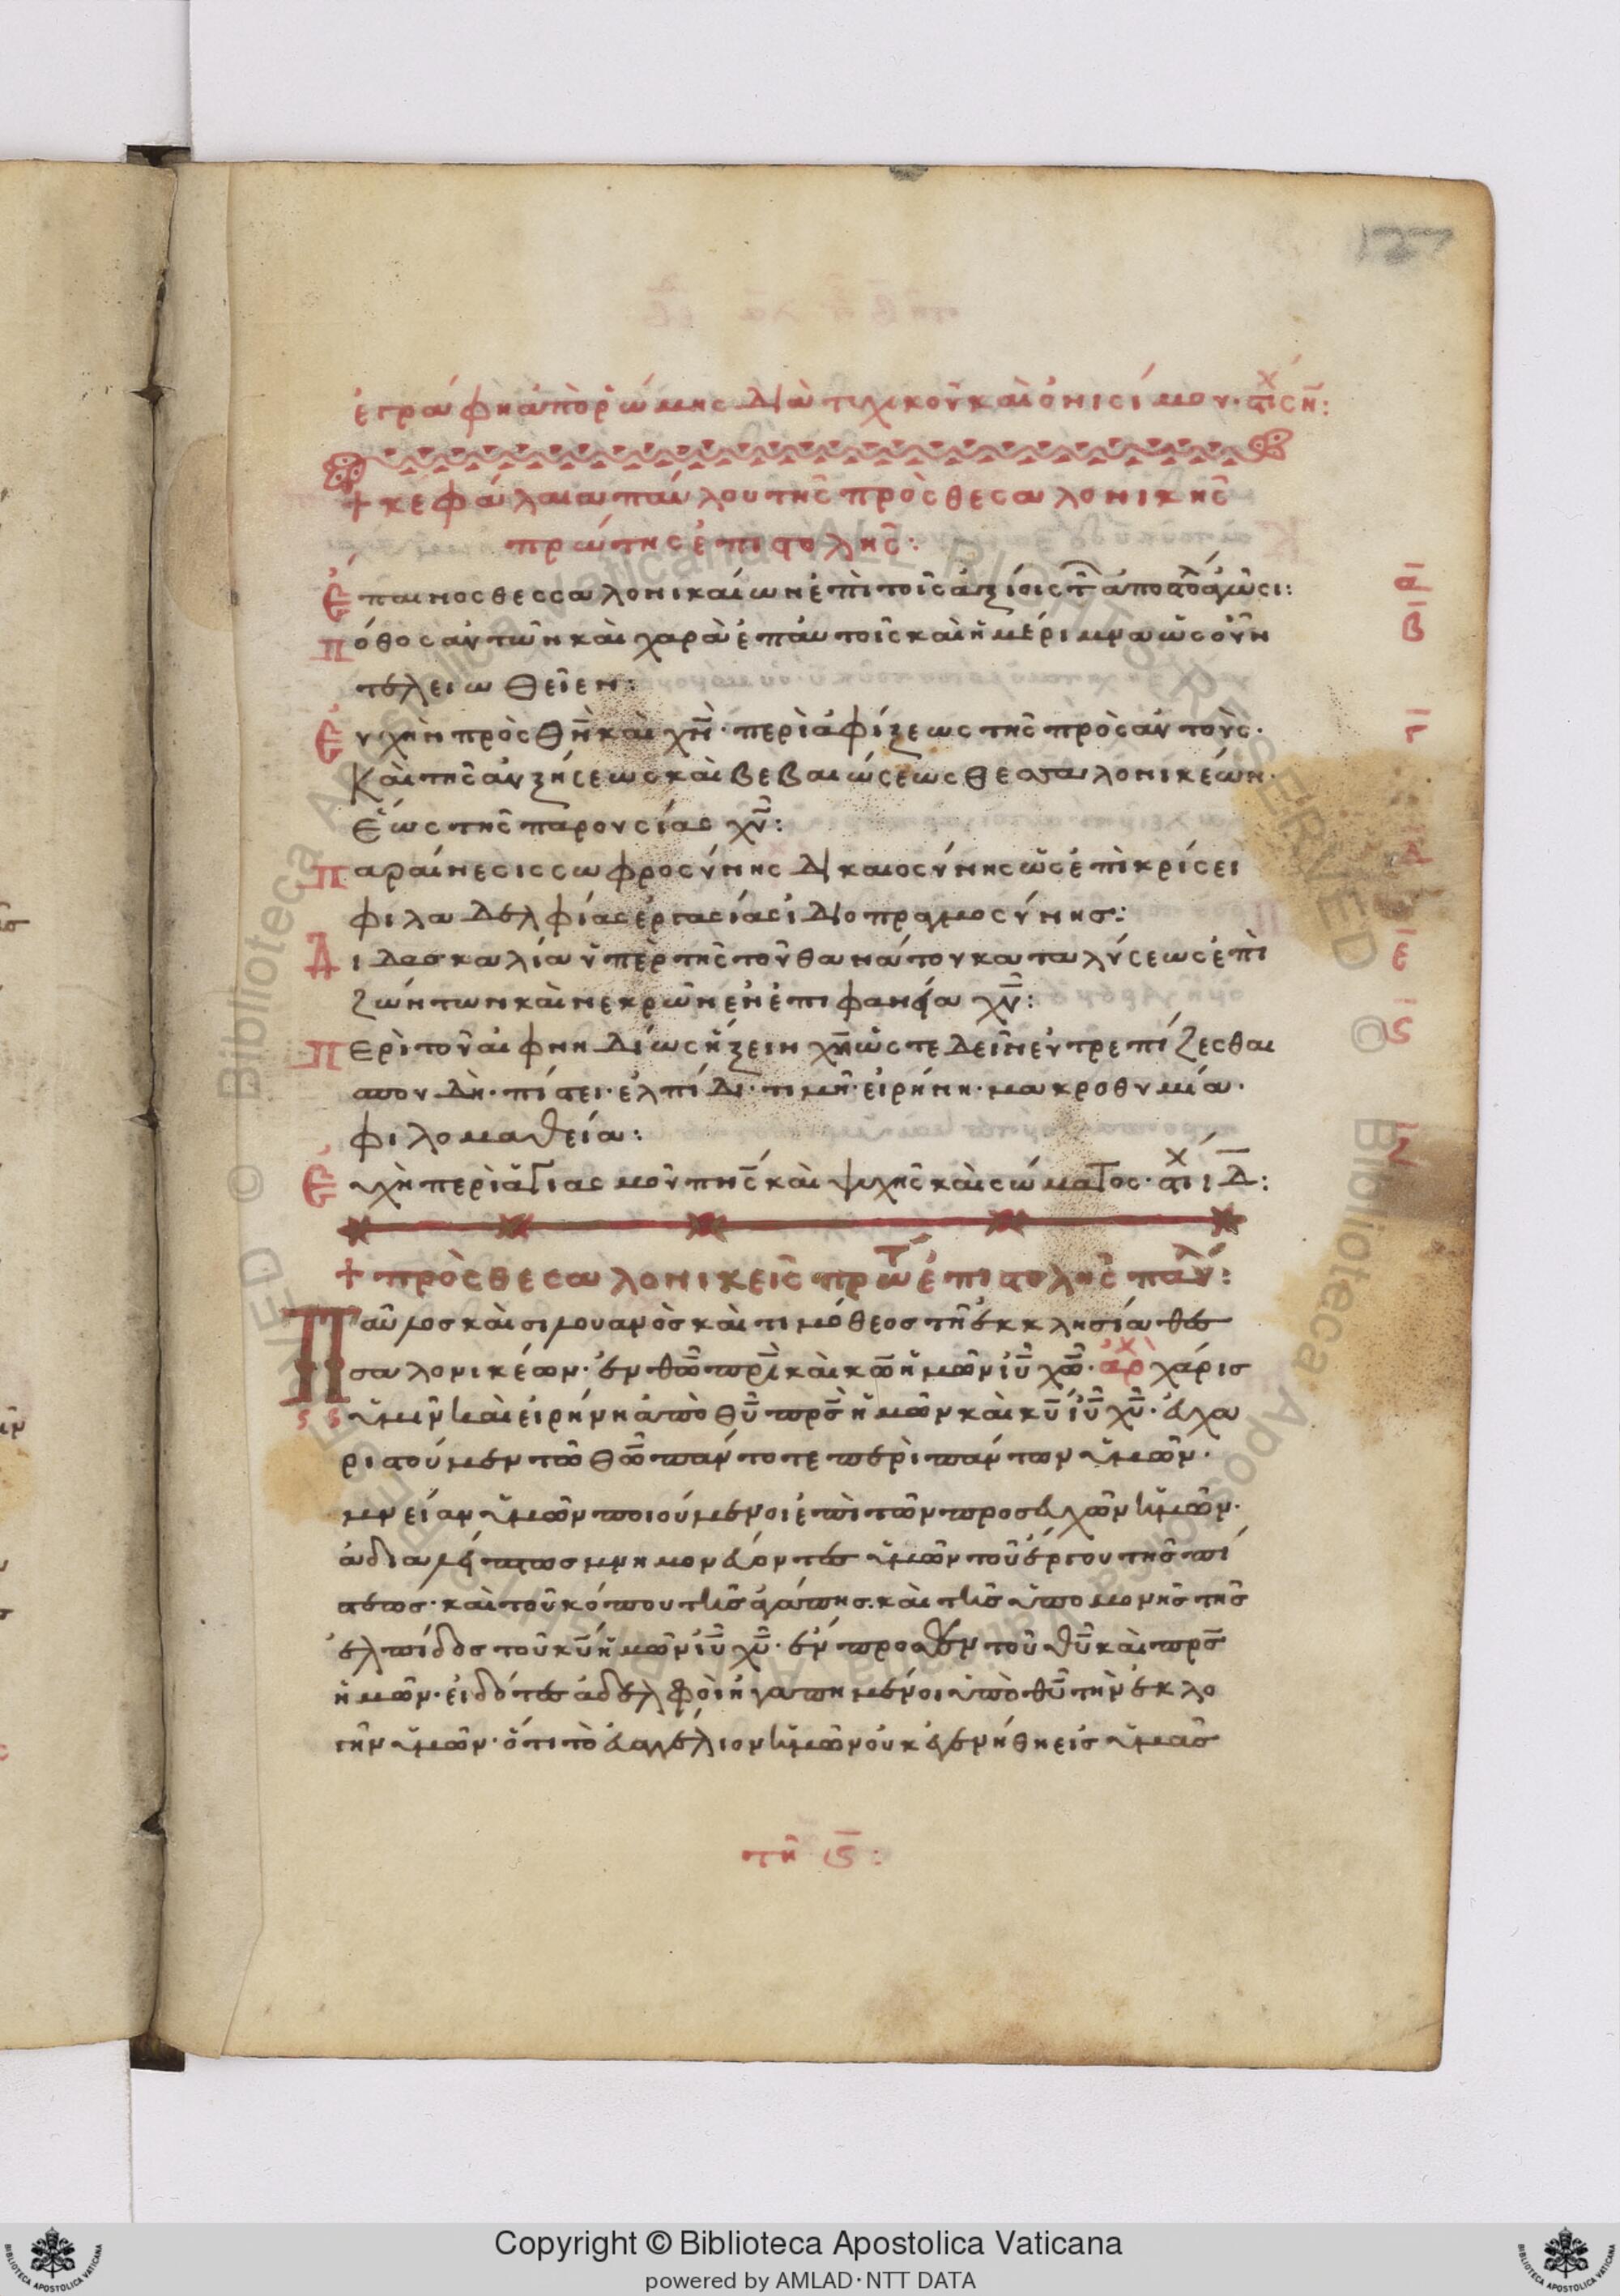 127
ἐγράφη ἀπὸ ῥώμης διὰ τυχικοῦ καὶ ὀνισίμου· στιχ ση:
+ κεφάλαια παύλου τῆς πρὸς θεσαλονικης
πρώτης ἐπιστολῆς:
Ἔπαινος θεσσαλονικαίων ἐπὶ τοῖς ἀξίοις τ ἀποστόλ α
Πόθος αὐτῶν καὶ χαρὰ ἐπ αυτοῖς καὶ ἡ μέριμνα ὥς οὖν β
τελειωθεῖεν:
Εὐχὴν πρὸς θν καὶ χν· περὶ ἀφίξεως τῆς πρὸς αὐτοὺς· γ
Καὶ τῆς αὐξήσεως καὶ βεβαιώσεως θεσσαλονικέων·
Ἕως τῆς παρουσίας χυ:
Παραίνεσις σωφροσύνης δικαιοσύνης ὥς ἐπὶ κρίσει δ
φιλαδελφίας ἐργασίας ἰδιοπραγμοσύνης:
Διδασκαλία ὑπὲρ τῆς τοῦ θανάτου καταλύσεως ἐπὶ ε
ζώντων καὶ νεκρῶν ἐν ἐπιφανεία χυ:
Περὶ τοῦ αἰφνηδίως ἥξειν χν ὥστε δεῖν εὐτρεπίζεσθαι ς
σπουδῆ· πίστει· ἐλπίδι· τιμῆ· εἰρήνη· μακροθυμία·
φιλομαθεία:
Εὐχὴ περὶ ἁγιασμοῦ πνς καὶ ψυχῆς καὶ σώματος· στιχ ιδ: ζ
+ πρὸς θεσαλονικεῖς πρώτ ἐπιστολῆς παύλ:
Παῦλος καὶ σιλουανὸς καὶ τιμόθεος τῆ ἐκκλησία θεσ
σαλονικέων· ἐν θω πρι καὶ κω ἡμῶν ιυ χω· ἀρχ χάρις
ὑμῖν καὶ εἰρήνη ἀπὸ θυ πρς ἡμῶν καὶ κυ ιυ χυ· εὐχα
ριστοῦμεν τῶ θω πάντοτε περὶ πάντων ὑμῶν·
μνείαν ὑμῶν ποιούμενοι ἐπὶ τῶν προσευχῶν ἡμῶν·
ἀδιαλείπτως μνημονεύοντες ὑμῶν τοῦ ἔργου τῆς πί
στεως· καὶ τοῦ κόπου τῆς ἀγάπης· καὶ τῆς ὑπομονῆς τῆς
ἐλπίδος τοῦ κυ ἡμῶν ιυ χυ· ἔμπροσθεν τοῦ θυ καὶ πρς
ἡμῶν· εἰδότες ἀδελφοὶ ἠγαπημένοι ὑπὸ θυ τὴν ἐκλο
γὴν ὑμῶν· ὅτι τὸ εὐαγγέλιον ἡμῶν οὐκ ἐγενήθη εἰς ὑμᾶς
τῆ ις:
Copyright © Biblioteca Apostolica Vaticana
powered by AMLAD·NTT DATA